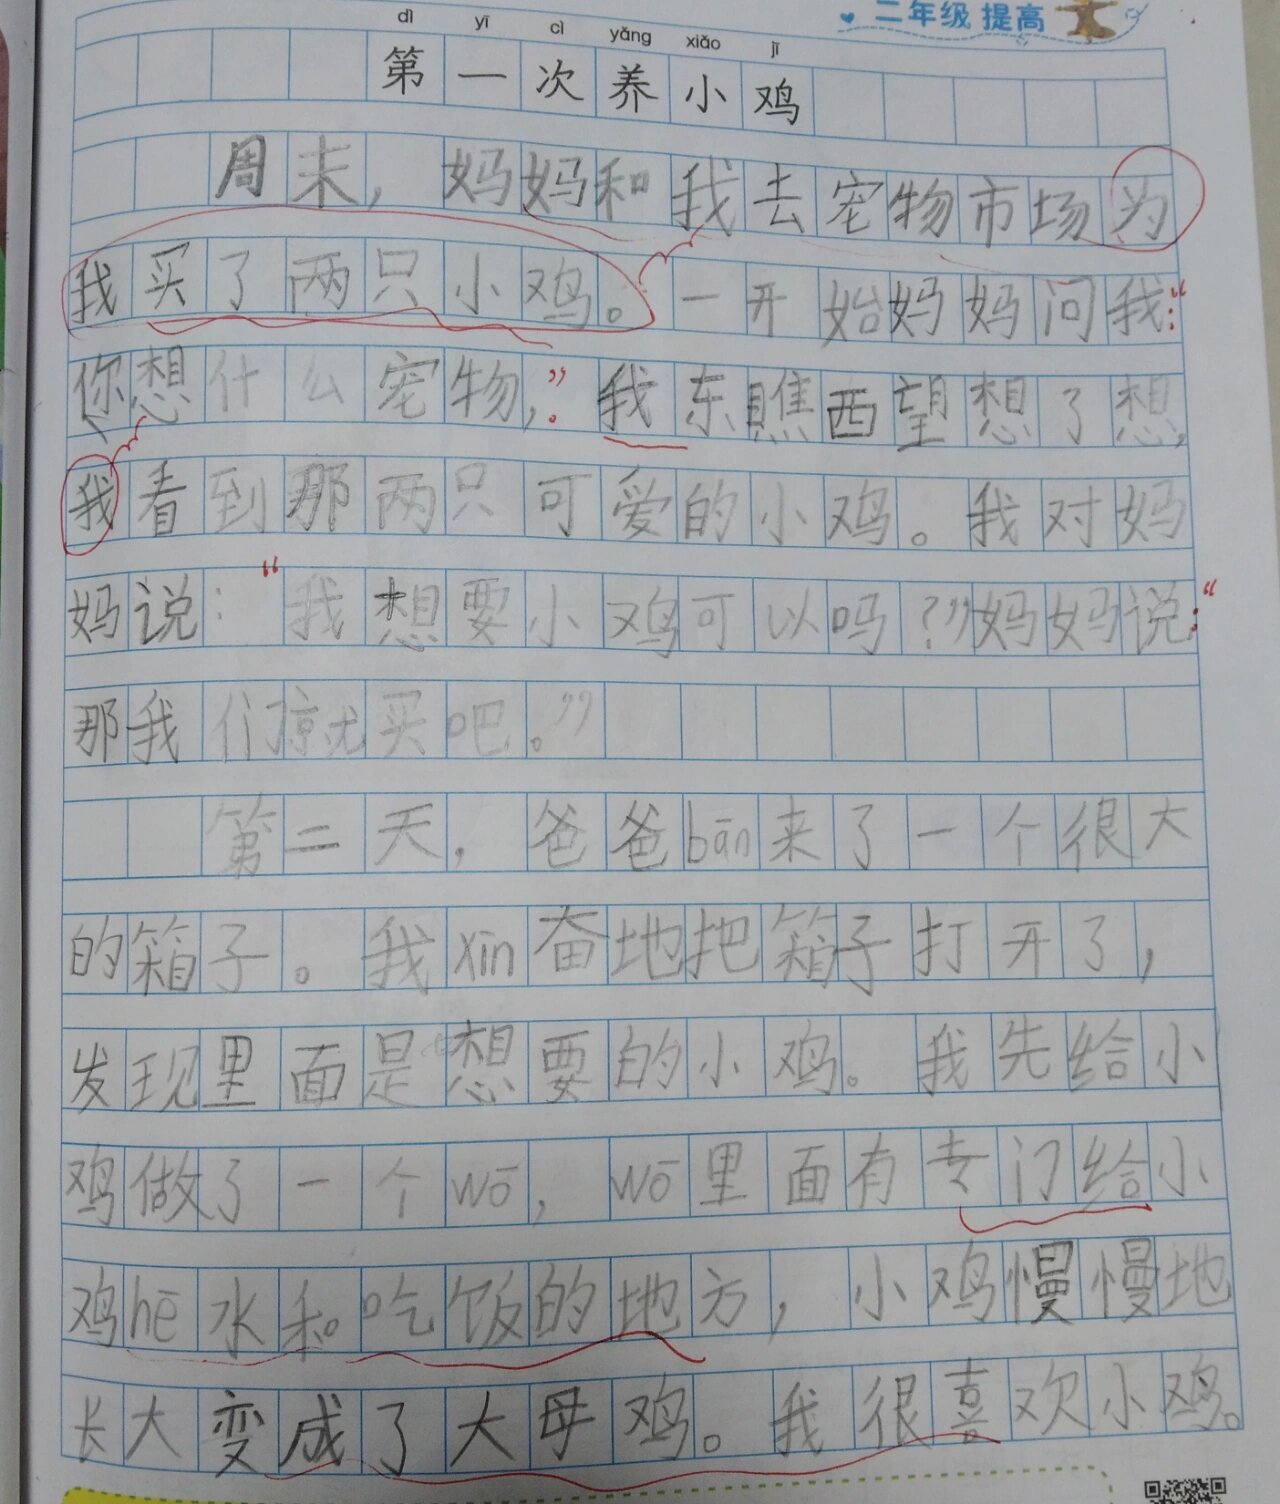 二年级 提高
dì yī cì yǎng xiǎo jī
第一次养小鸡
周末，妈妈和我去宠物市场为
我买了两只小鸡。一开始妈妈问我：“
你想什么宠物，”。我东瞧西望想了想，
我看到那两只可爱的小鸡。我对妈
妈说：“我想要小鸡可以吗？”妈妈说：“
那我们就买吧。”
第二天，爸爸bān来了一个很大
的箱子。我xīn奋地把箱子打开了，
发现里面是想要的小鸡。我先给小
鸡做了一个wō，wō里面有专门给小
鸡hē水和吃饭的地方，小鸡慢慢地
长大变成了大母鸡。我很喜欢小鸡。